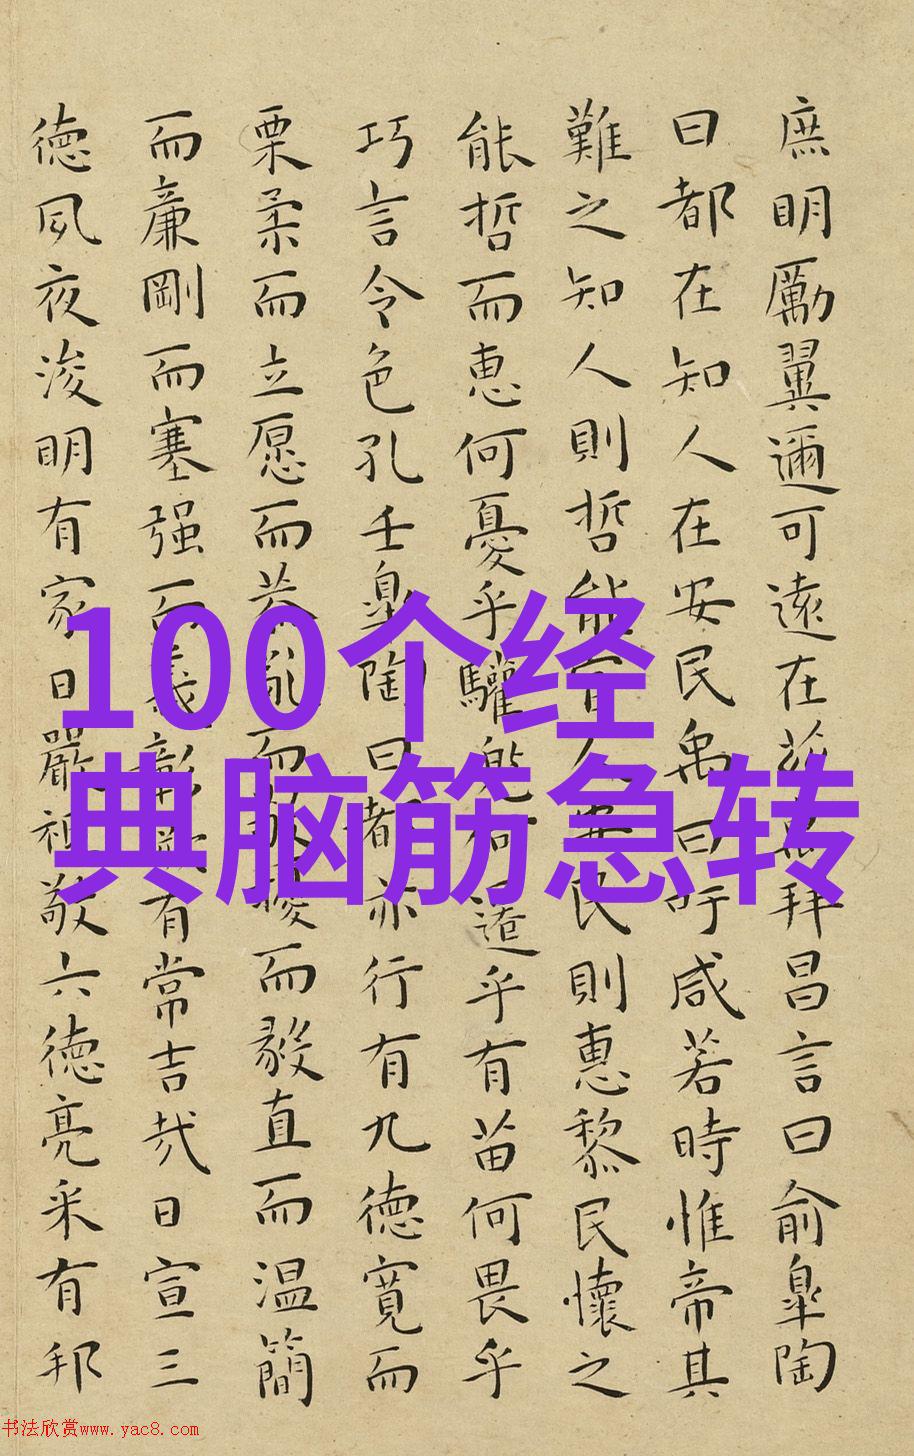 庶明勵翼邇可遠在茲禹拜昌言曰俞皐陶
曰都在知人在安民禹曰吁咸若時惟帝其
難之知人則哲能官人安民則惠黎民懷之
能哲而惠何憂乎驩兜何遷乎有苗何畏乎
巧言令色孔壬皐陶曰都亦行有九德寬而
栗柔而立愿而恭亂而敬擾而毅直而温簡
而廉剛而塞强而義彰厥有常吉哉日宣三
德夙夜浚明有家日嚴祗敬六德亮采有邦
100个经
典脑筋急转
书法欣赏www.yac8.com